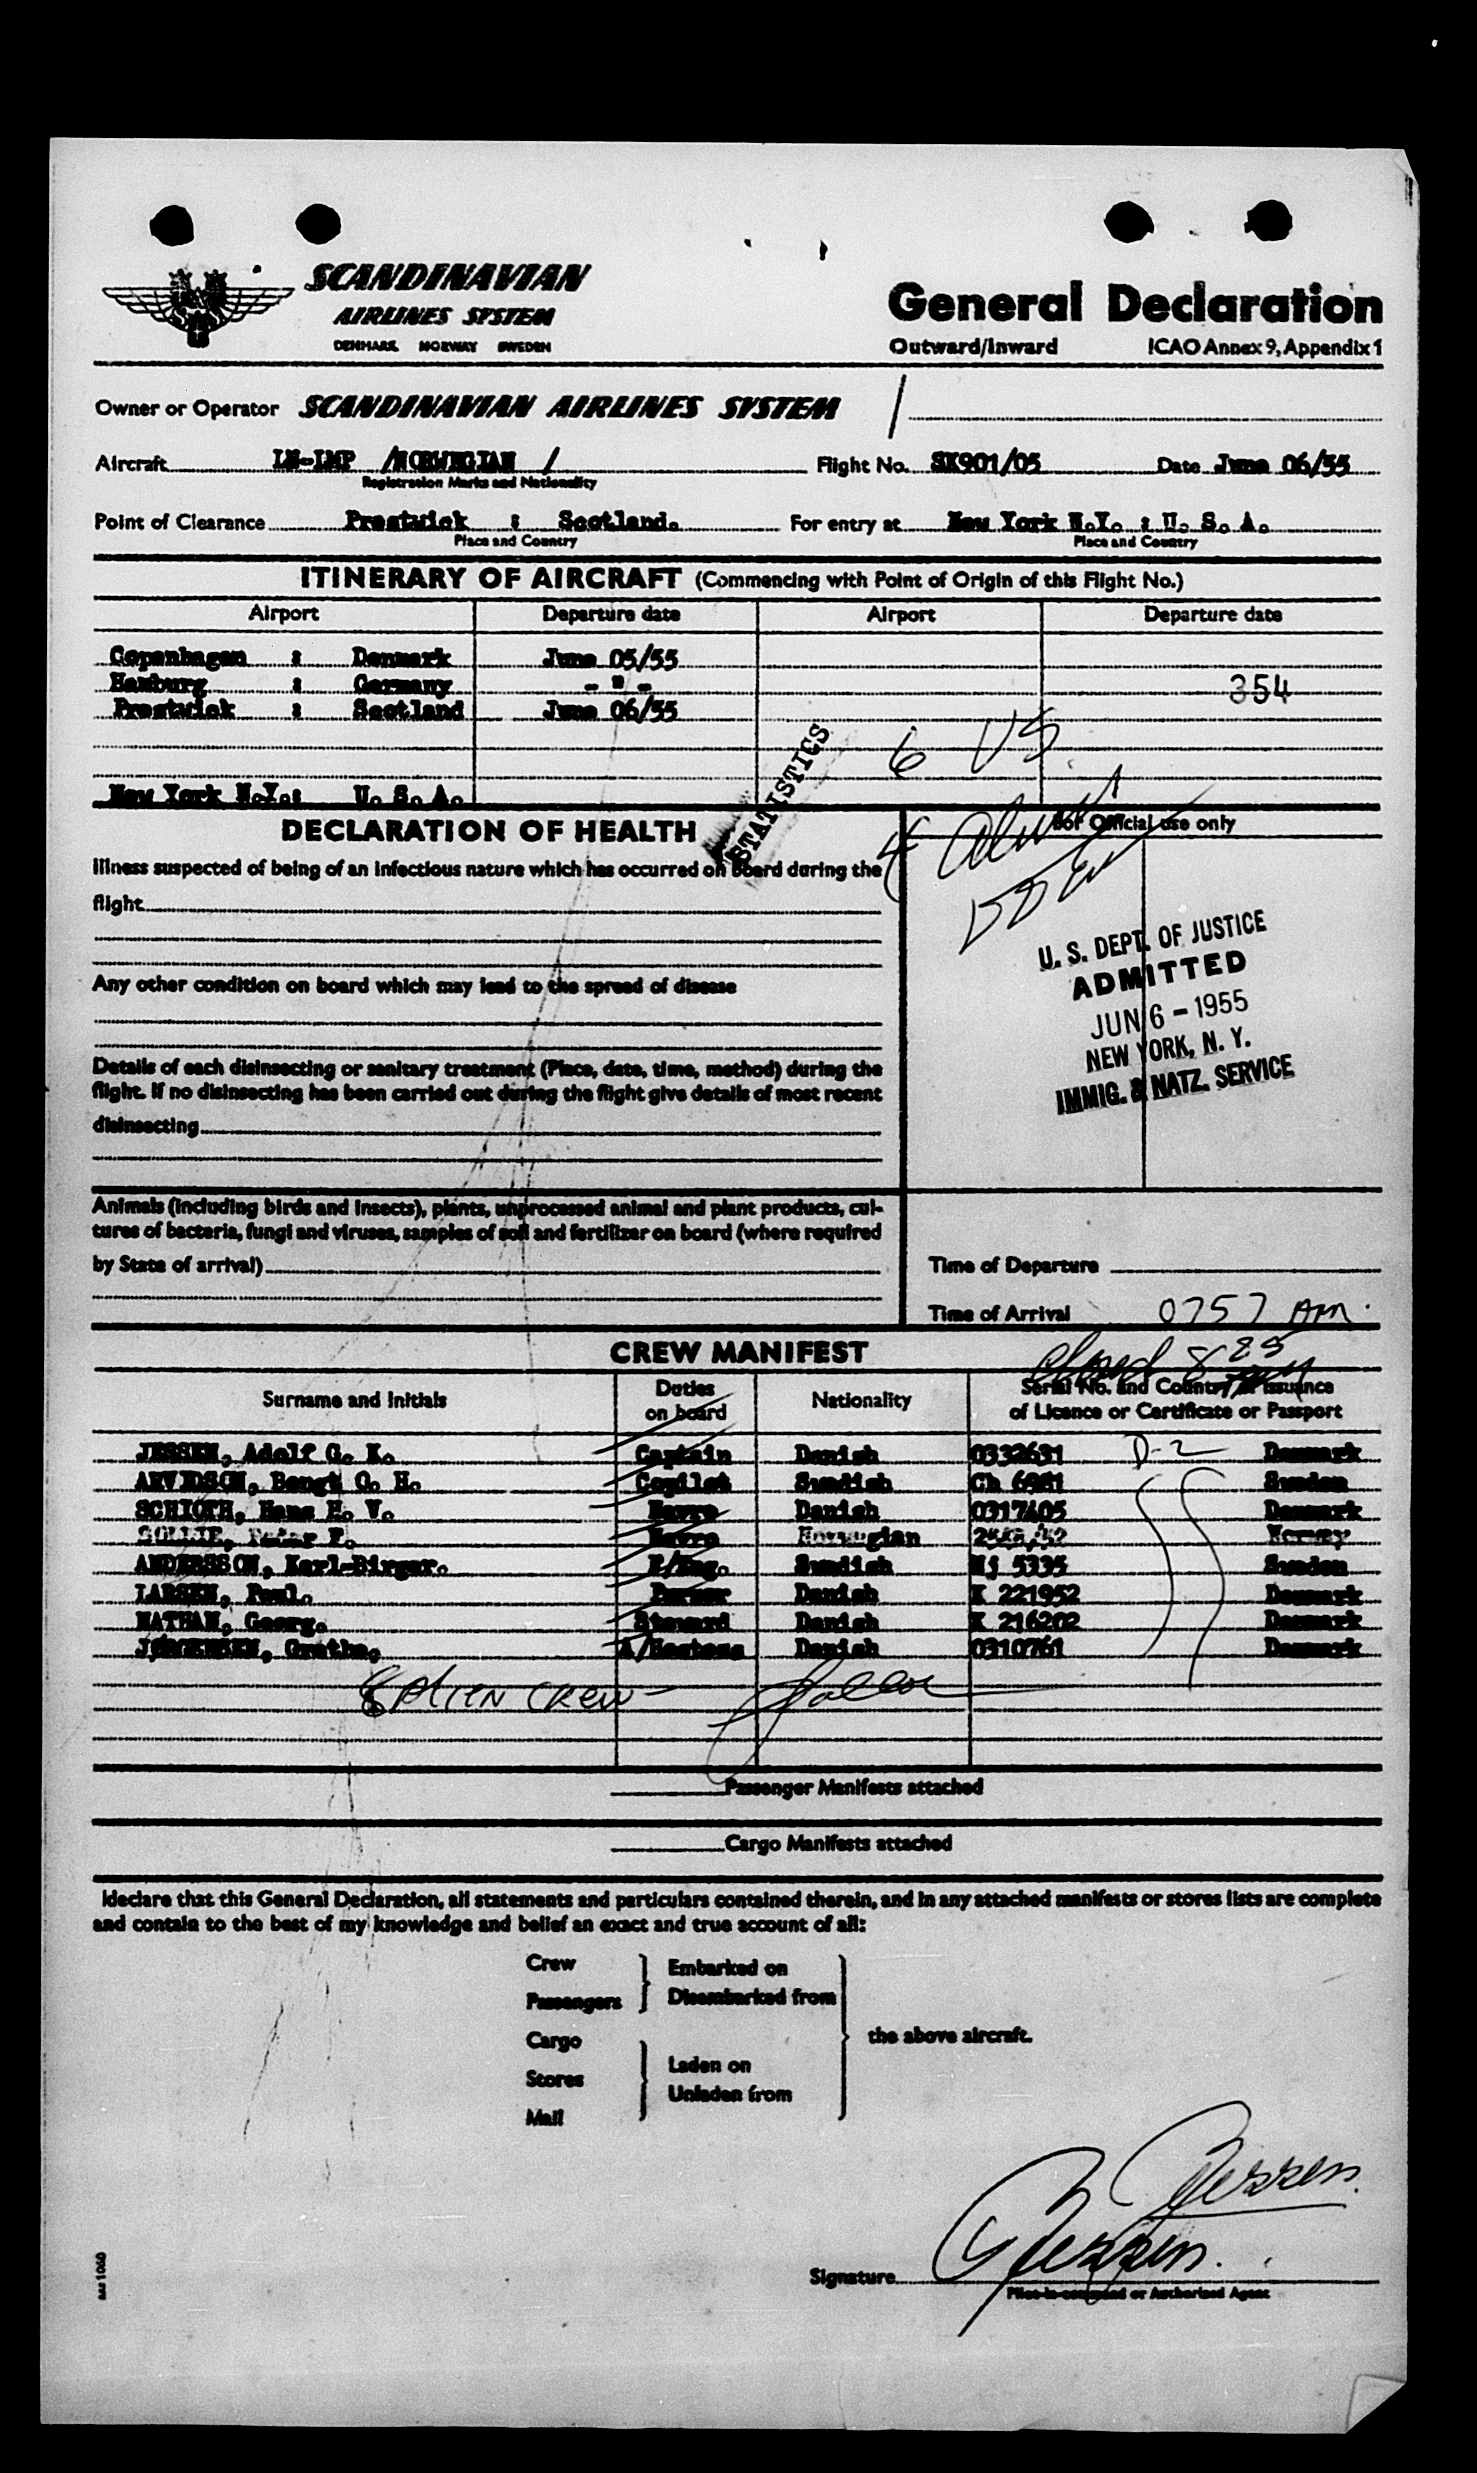 SCANDINAVIAN
AIRLINES SYSTEM
DENMARK NORWAY SWEDEN
General Declaration
Outward/Inward ICAO Annex 9, Appendix 1
Owner or Operator SCANDINAVIAN AIRLINES SYSTEM
Aircraft LN-LMP /NORWEGIAN / Flight No. SK901/05 Date June 06/55
Registration Marks and Nationality
Point of Clearance Prestwick : Scotland. For entry at New York N.Y. : U. S. A.
Place and Country Place and Country
ITINERARY OF AIRCRAFT (Commencing with Point of Origin of this Flight No.)
Airport Departure date Airport Departure date
Copenhagen : Denmark June 05/55
Hamburg : Germany - " - 354
Prestwick : Scotland June 06/55
6 US
New York N.Y.: U. S. A.
STATISTICS
DECLARATION OF HEALTH
For Official use only
Illness suspected of being of an infectious nature which has occurred on board during the
flight
U. S. DEPT. OF JUSTICE
ADMITTED
JUN 6 - 1955
NEW YORK, N. Y.
IMMIG. & NATZ. SERVICE
Any other condition on board which may lead to the spread of disease
Details of each disinsecting or sanitary treatment (Place, date, time, method) during the
flight. If no disinsecting has been carried out during the flight give details of most recent
disinsecting
Animals (including birds and insects), plants, unprocessed animal and plant products, cul-
tures of bacteria, fungi and viruses, samples of soil and fertilizer on board (where required
by State of arrival)
Time of Departure
Time of Arrival 0757 AM.
CREW MANIFEST
Surname and Initials Duties on board Nationality Serial No. and Country of Issuance of Licence or Certificate or Passport
JESSEN, Adolf G. K. Captain Danish 0332631 D-2 Denmark
ARVIDSON, Bengt O. H. Copilot Swedish Ch Sweden
SCHIOTH, Hans H. V. Navro Danish 0317405 Denmark
F. Navro Norwegian Norway
ANDERSSON, Karl-Birger. F/Eng. Swedish Mj 5335 Sweden
LARSEN, Poul. Purser Danish K 221952 Denmark
NATHAN, Georg. Steward Danish K 216202 Denmark
JØRGENSEN, Grethe, A/Hostess Danish 0310761 Denmark
8 Alien Crew
Passenger Manifests attached
Cargo Manifests attached
I declare that this General Declaration, all statements and particulars contained therein, and in any attached manifests or stores lists are complete
and contain to the best of my knowledge and belief an exact and true account of all:
Crew
Passengers
Embarked on
Disembarked from
Cargo
Stores
Mail
Laden on
Unladen from
the above aircraft.
Jessen.
Signature Jessen.
Pilot-in-command or Authorized Agent
SAS 1060